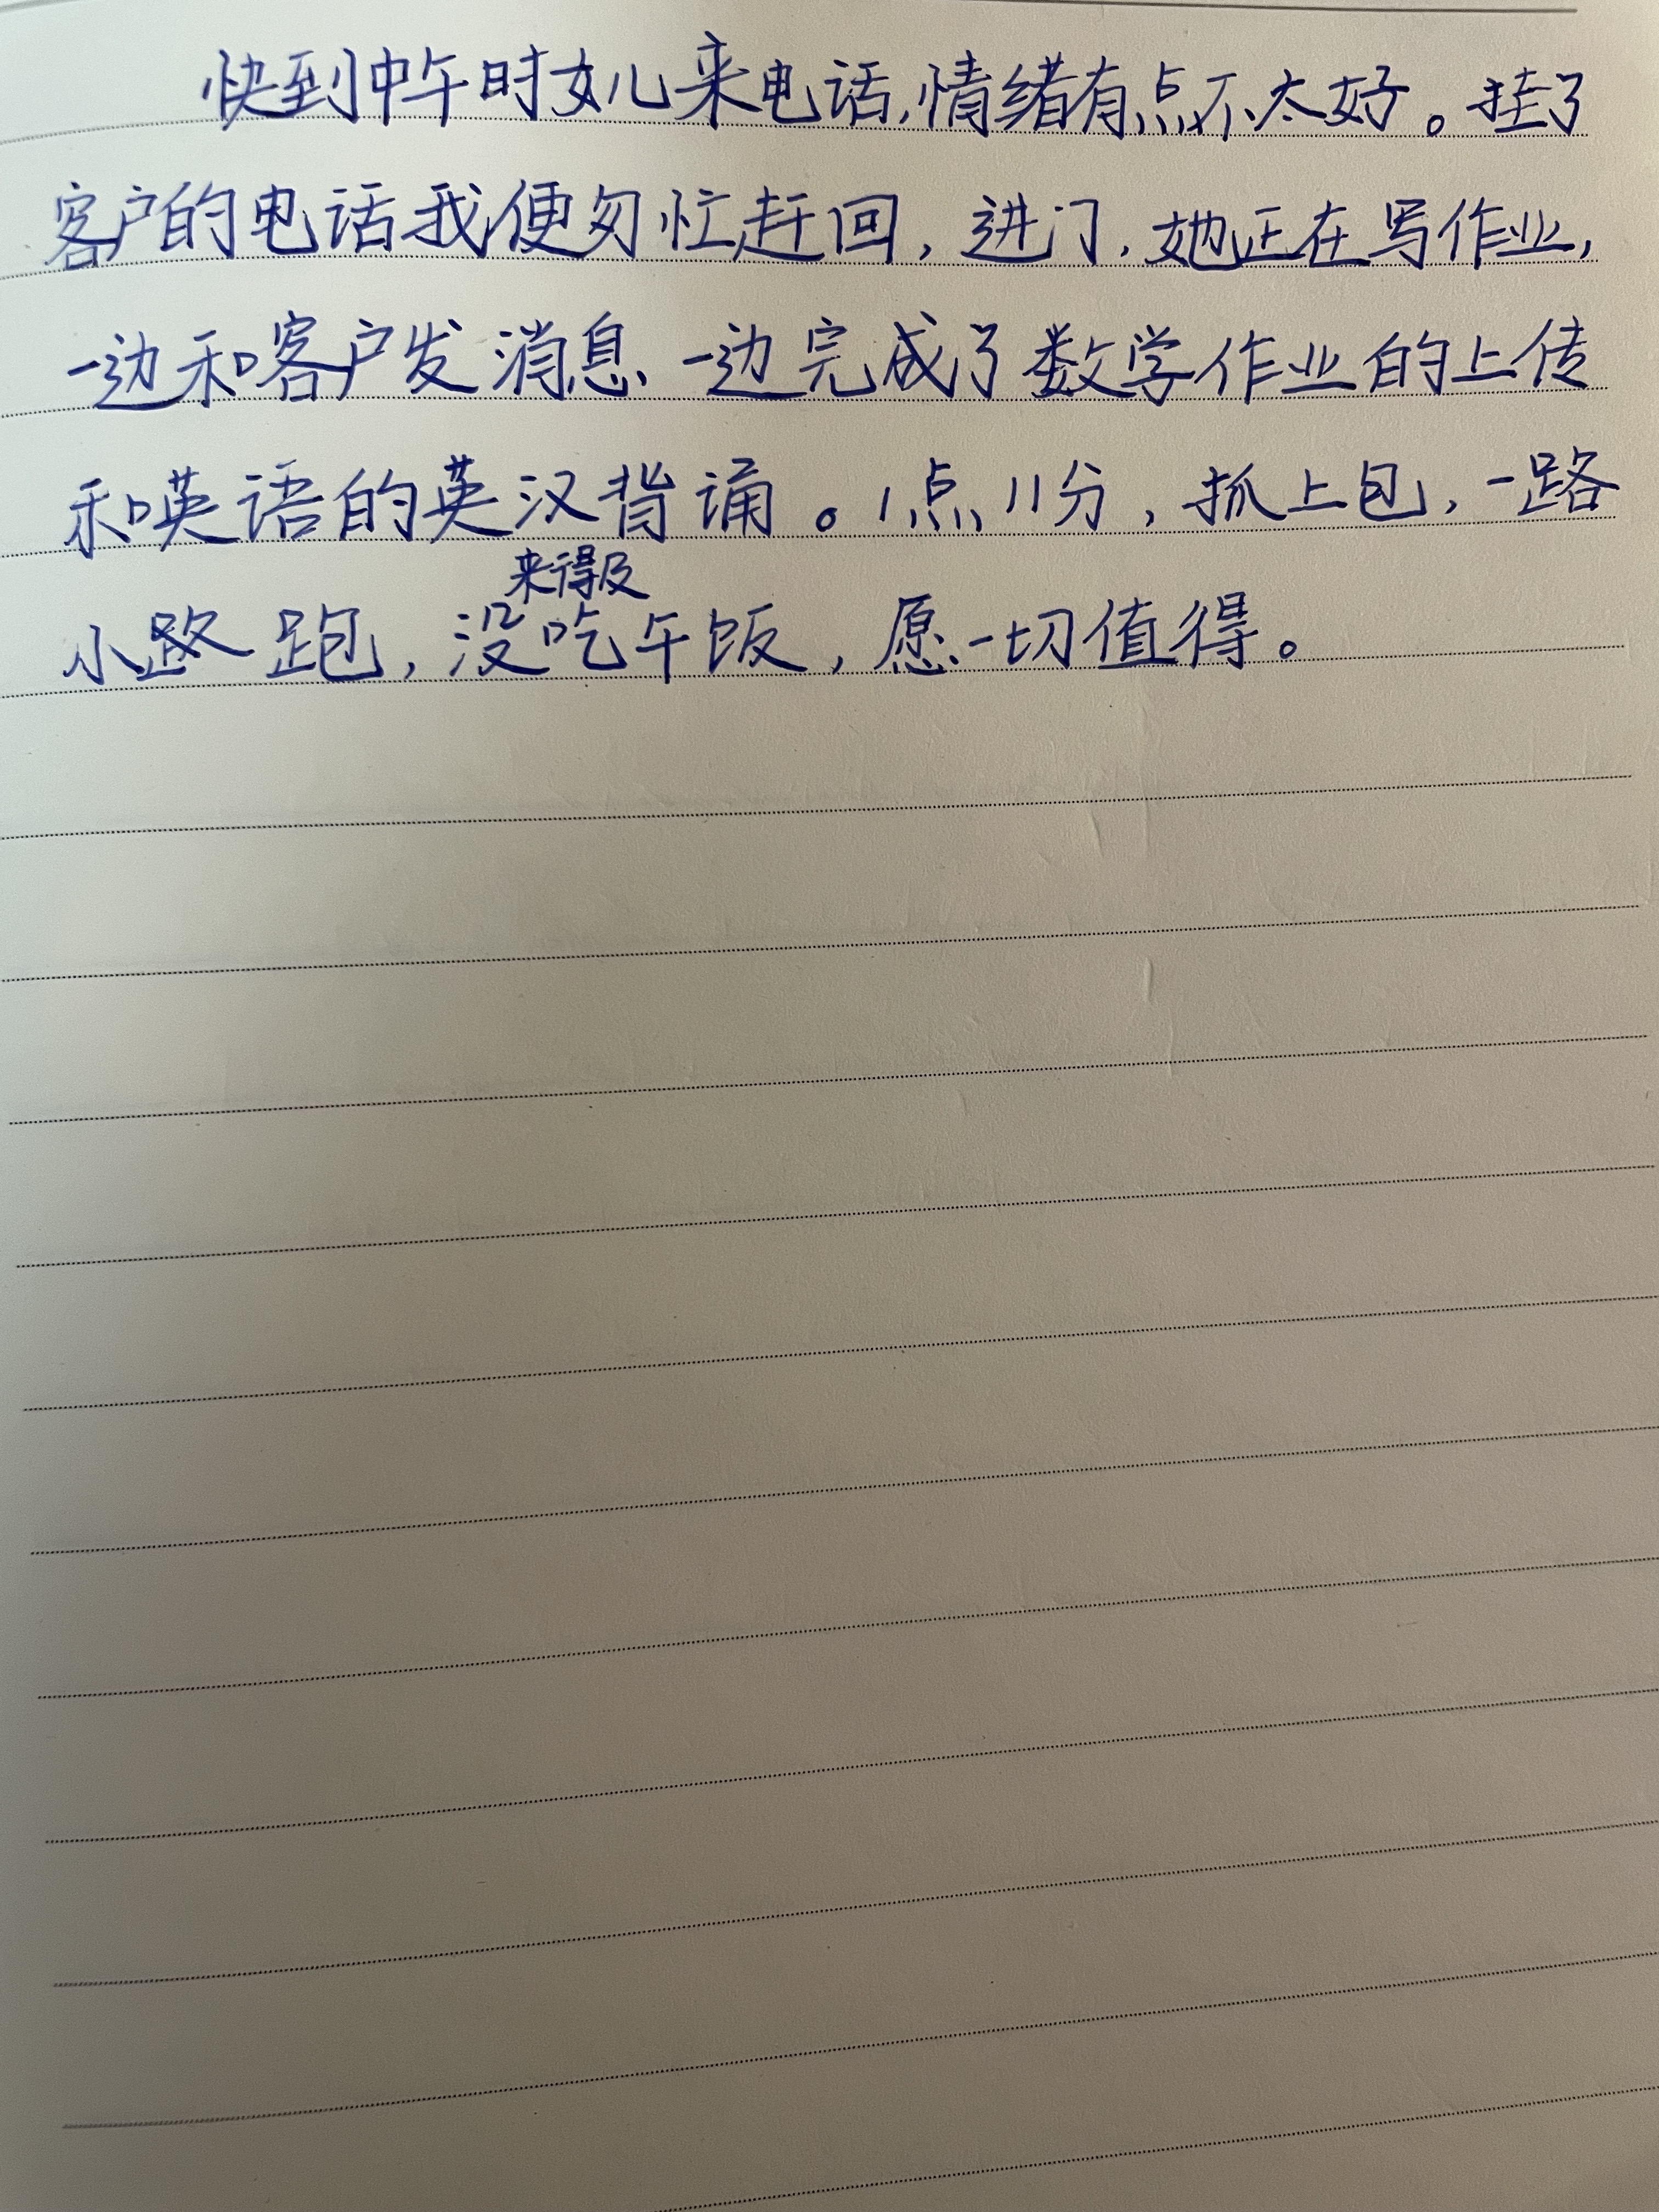 快到中午时女儿来电话,情绪有点不太好。挂了
客户的电话我便匆忙赶回,进门,她正在写作业,
一边和客户发消息、一边完成了数学作业的上传
和英语的英汉背诵。1点11分,抓上包,一路
来得及
小路跑,没吃午饭,愿一切值得。